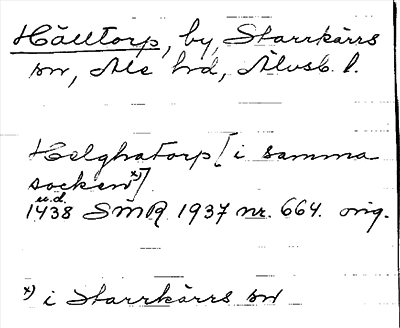 Hälltorp, by, Starrkärrs
sn, Ale hd, Älvsb. l.
Helghatorp [i samma
socken x)]
u.d.
1438 SMR 1937 nr. 664. orig.
x) i Starrkärrs sn